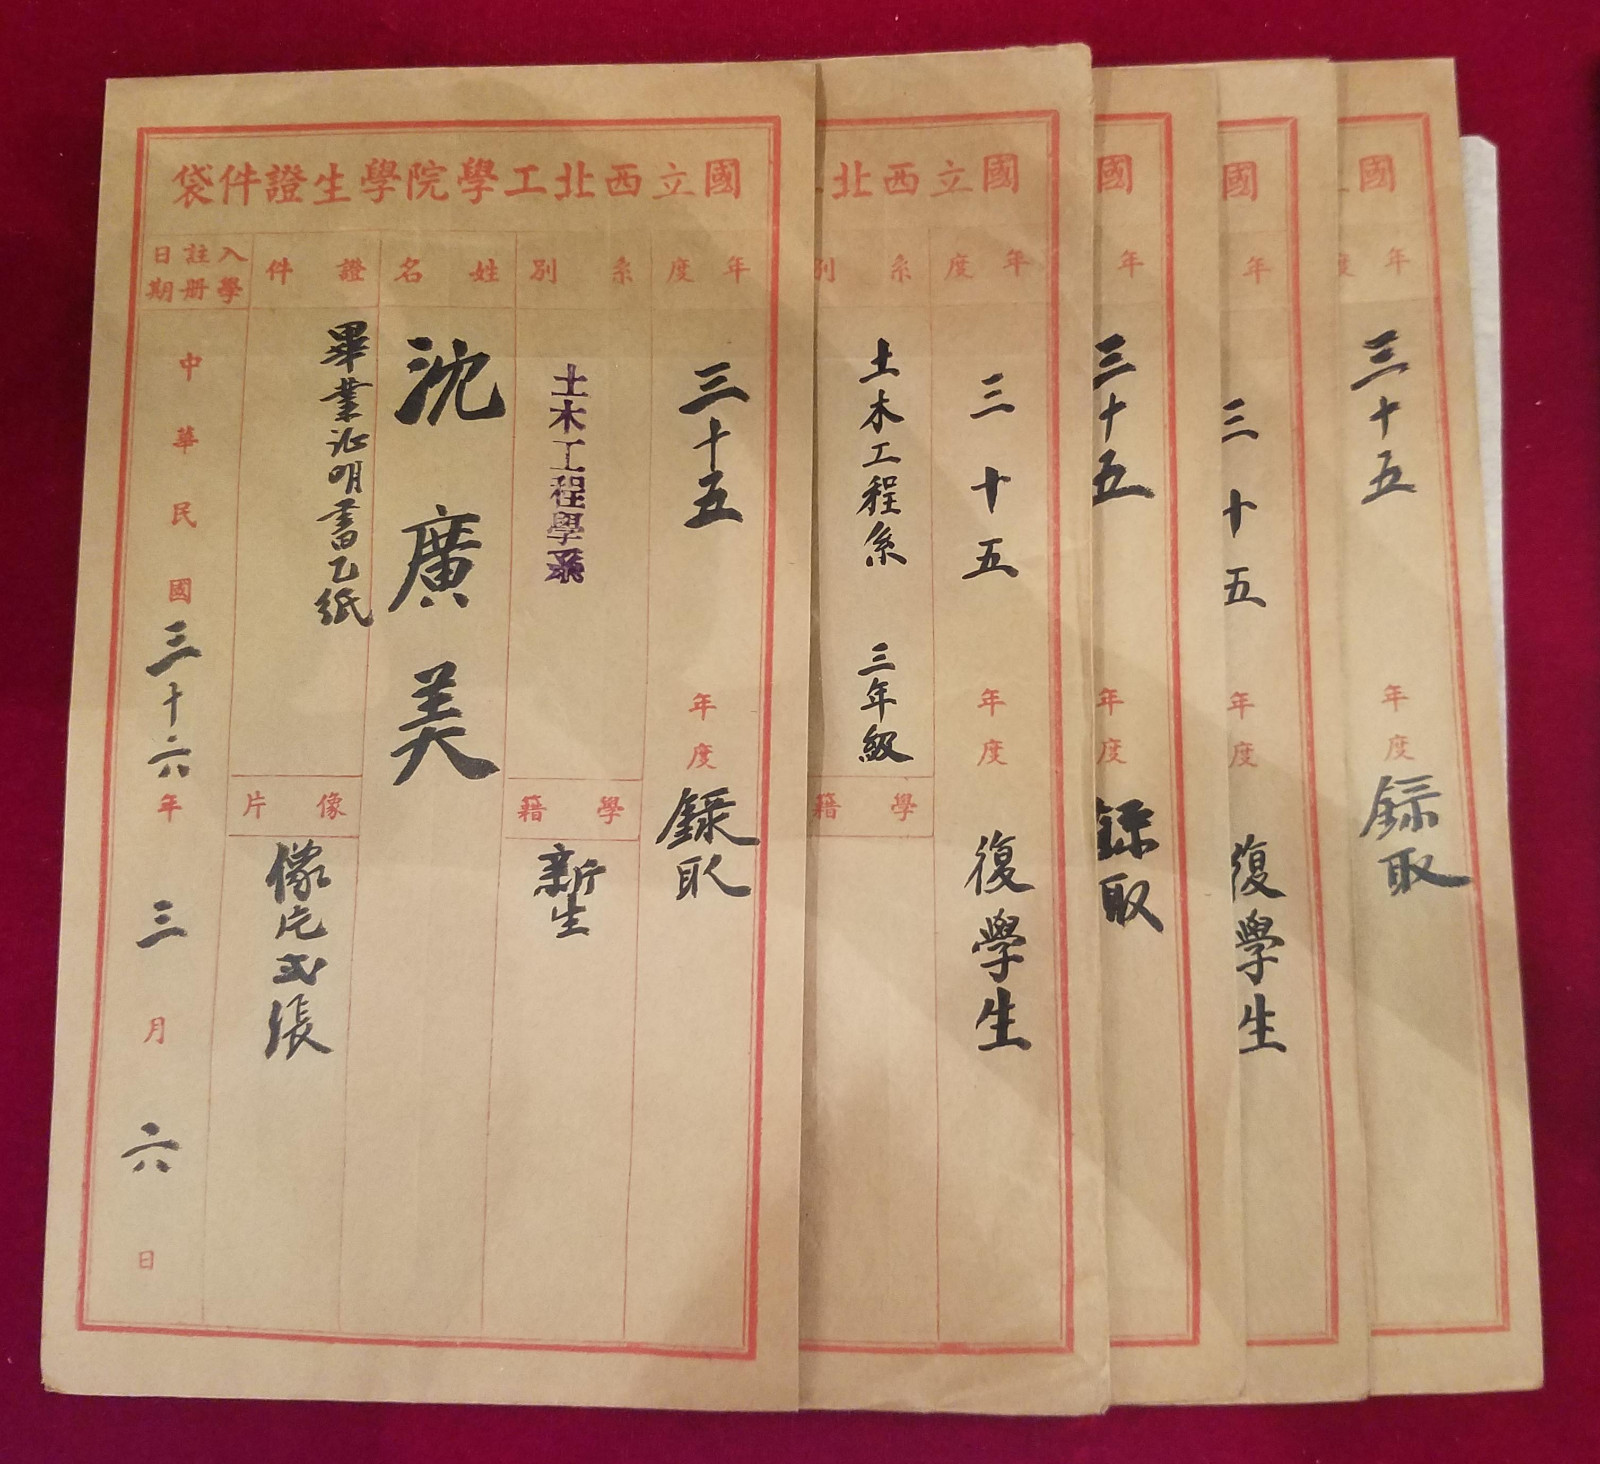 國立西北工學院學生證件袋
年度
三十五年度錄取
系別
土木工程學系
學籍
新生
姓名
沈廣美
證件
畢業证明書乙紙
像片
像片弍張
入學註册日期
中華民國三十六年三月六日
國立西北工
年度
三十五年度復學生
系別
土木工程系 三年級
學籍
國
年
三十五年度錄取
國
年
三十五年度復學生
國
年度
三十五年度錄取